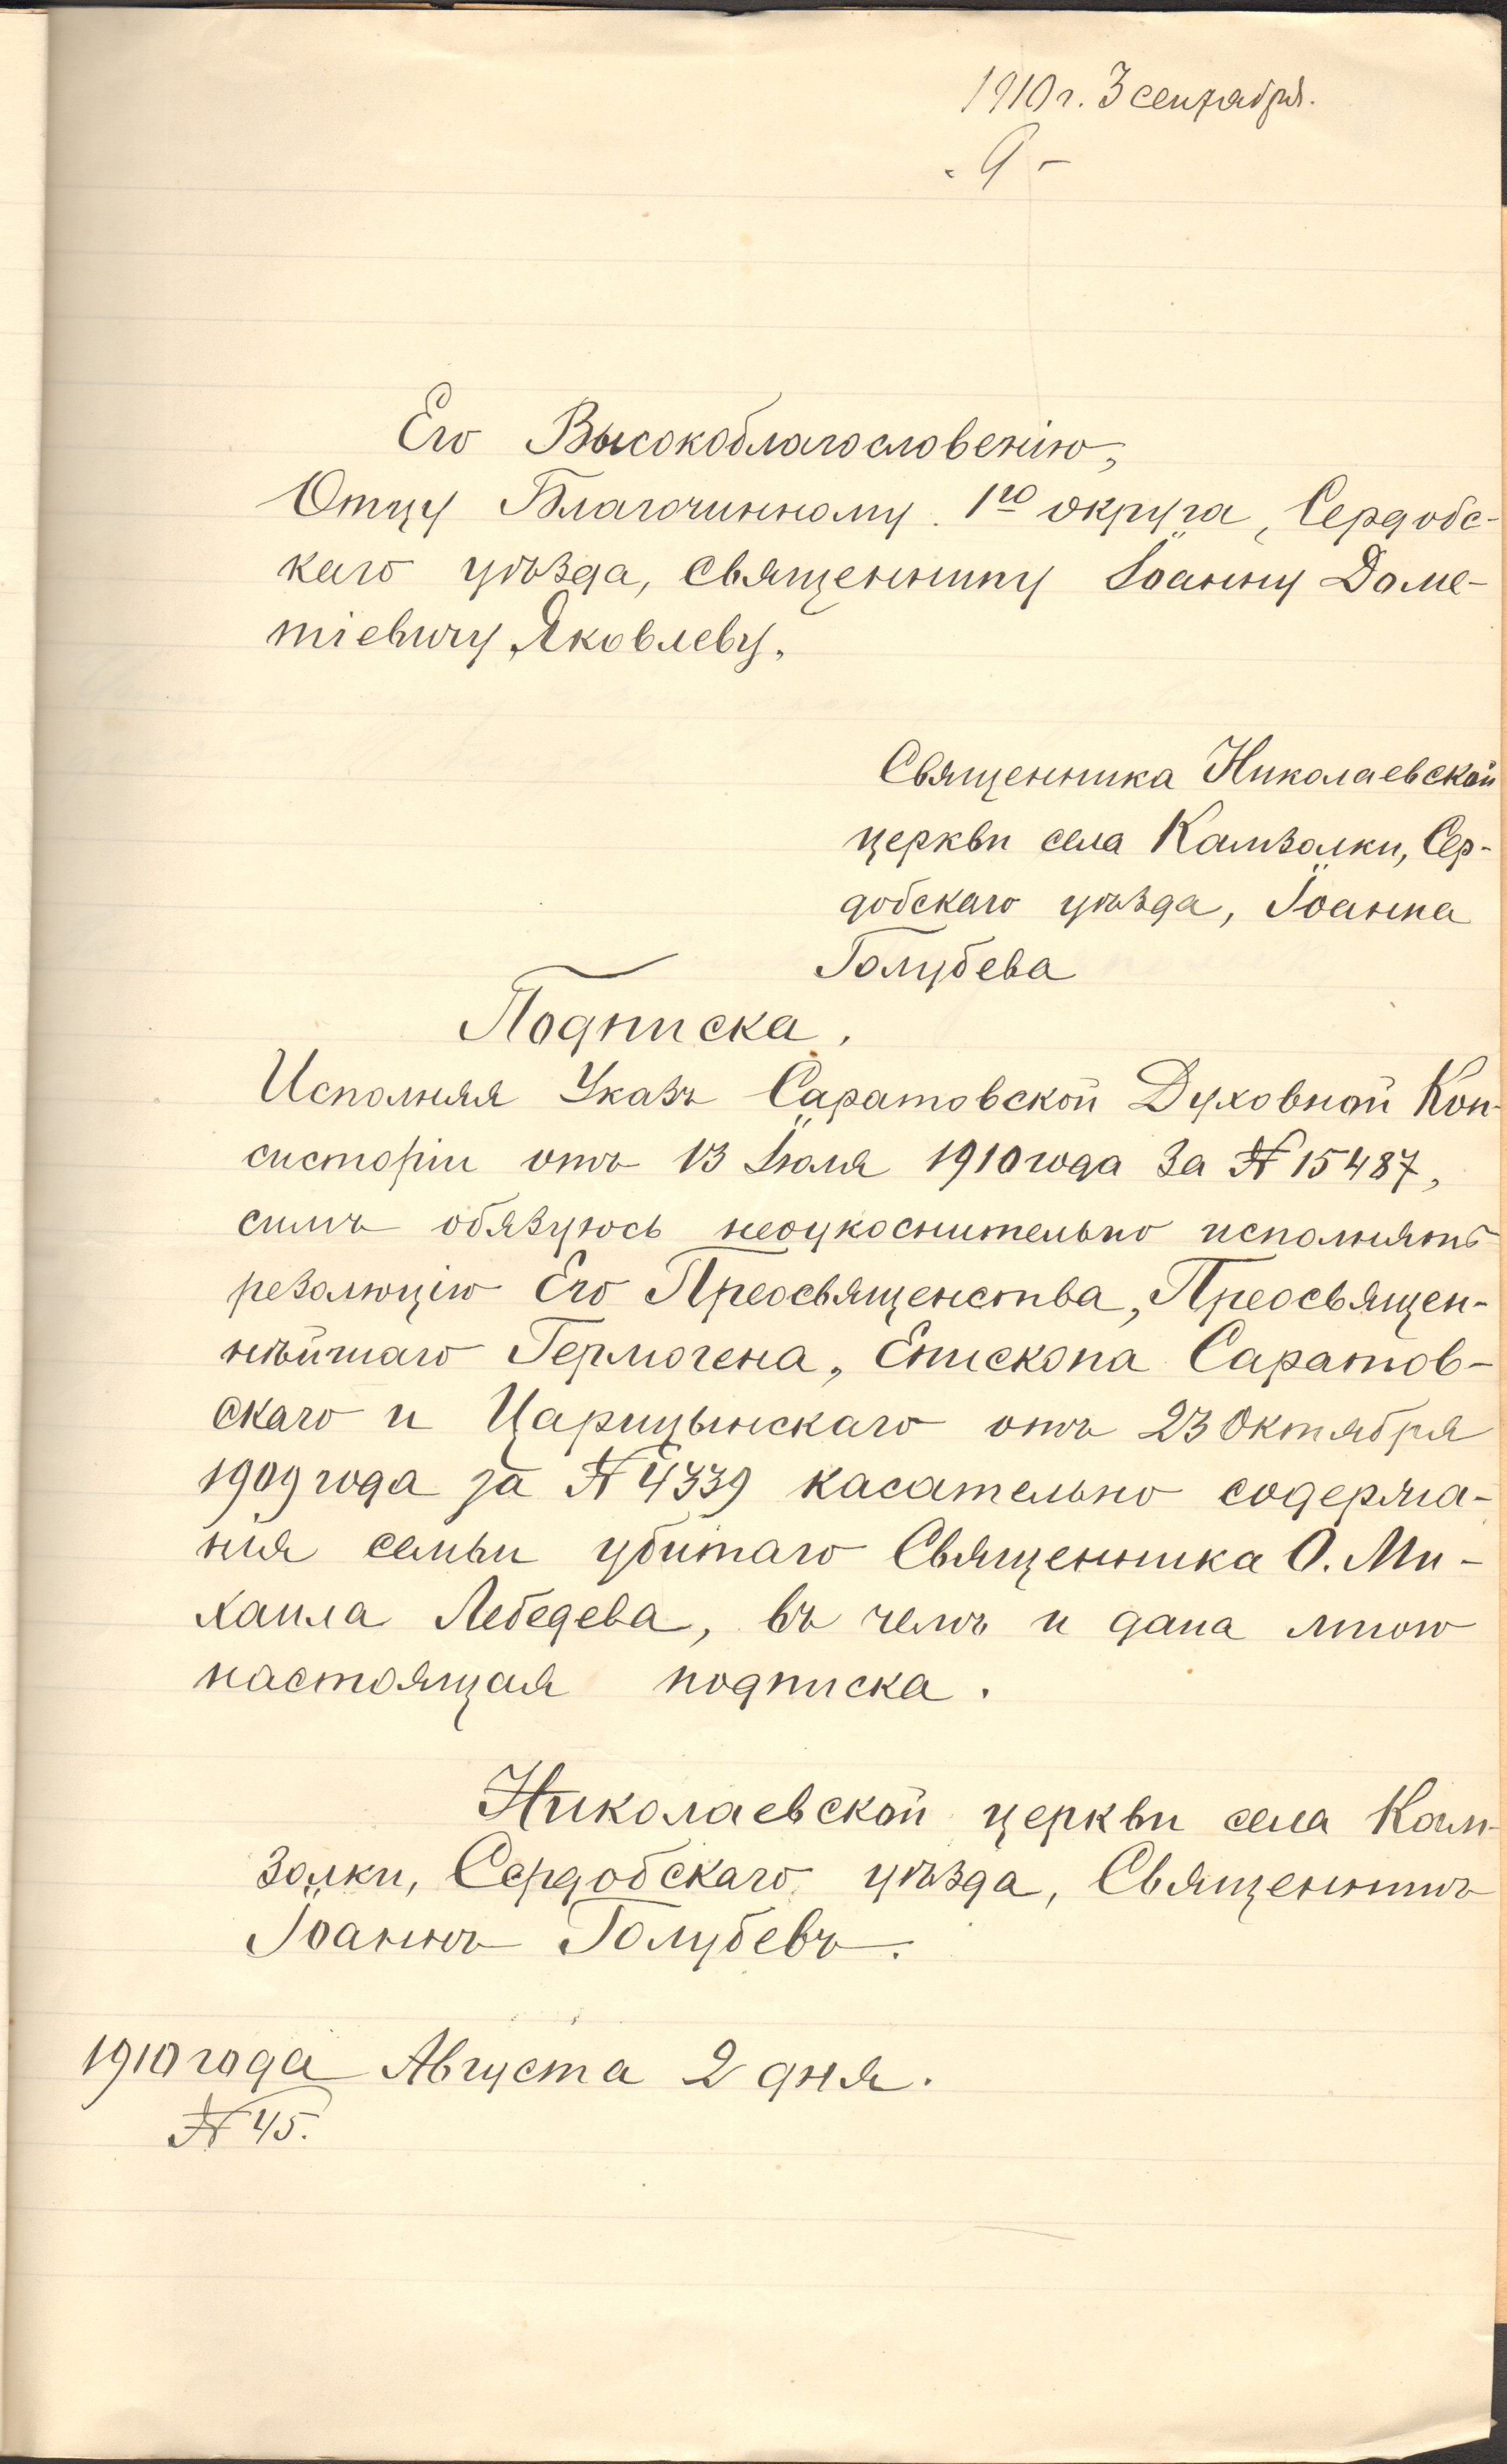 1910 г. 3 сентября.
- 9 -
Его Высокоблагословенію,
Отцу Благочинному 1го округа, Сердобс-
каго уѣзда, священнику Іоанну Доме-
тіевичу Яковлеву,
Священника Николаевской
церкви села Камзолки, Сер-
добскаго уѣзда, Іоанна
Голубева
Подписка.
Исполняя Указъ Саратовской Духовной Кон-
систоріи отъ 13 Іюля 1910 года за № 15487,
симъ обязуюсь неоукоснительно исполнять
резолюцію Его Преосвященства, Преосвящен-
нѣйшаго Гермогена, Епископа Саратов-
скаго и Царицынскаго отъ 23 Октября
1909 года за № 4339 касательно содержа-
нія семьи убитаго Священника О. Ми-
хаила Лебедева, въ чемъ и дана мною
настоящая подписка.
Николаевской церкви села Кам-
золки, Сердобскаго уѣзда, Священникъ
Іоаннъ Голубевъ.
1910 года Августа 2 дня.
№ 45.